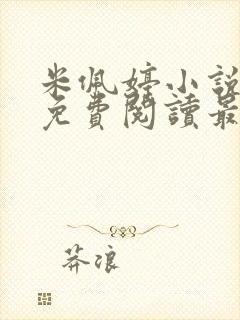 米佩婷小說
免費閱讀最
莽浪